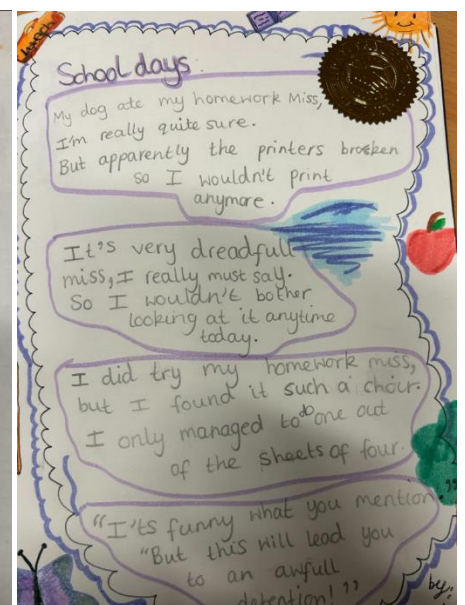 School days.
My dog ate my homework Miss,
I'm really quite sure.
But apparently the printers broken
so I wouldn't print
anymore.
It's very dreadfull
miss, I really must say.
So I wouldn't bother
looking at it anytime
today.
I did try my homework miss,
but I found it such a choir.
I only managed to do one out
of the sheets of four.
"I'ts funny what you mention."
"But this will lead you
to an awfull
detention!"
by: